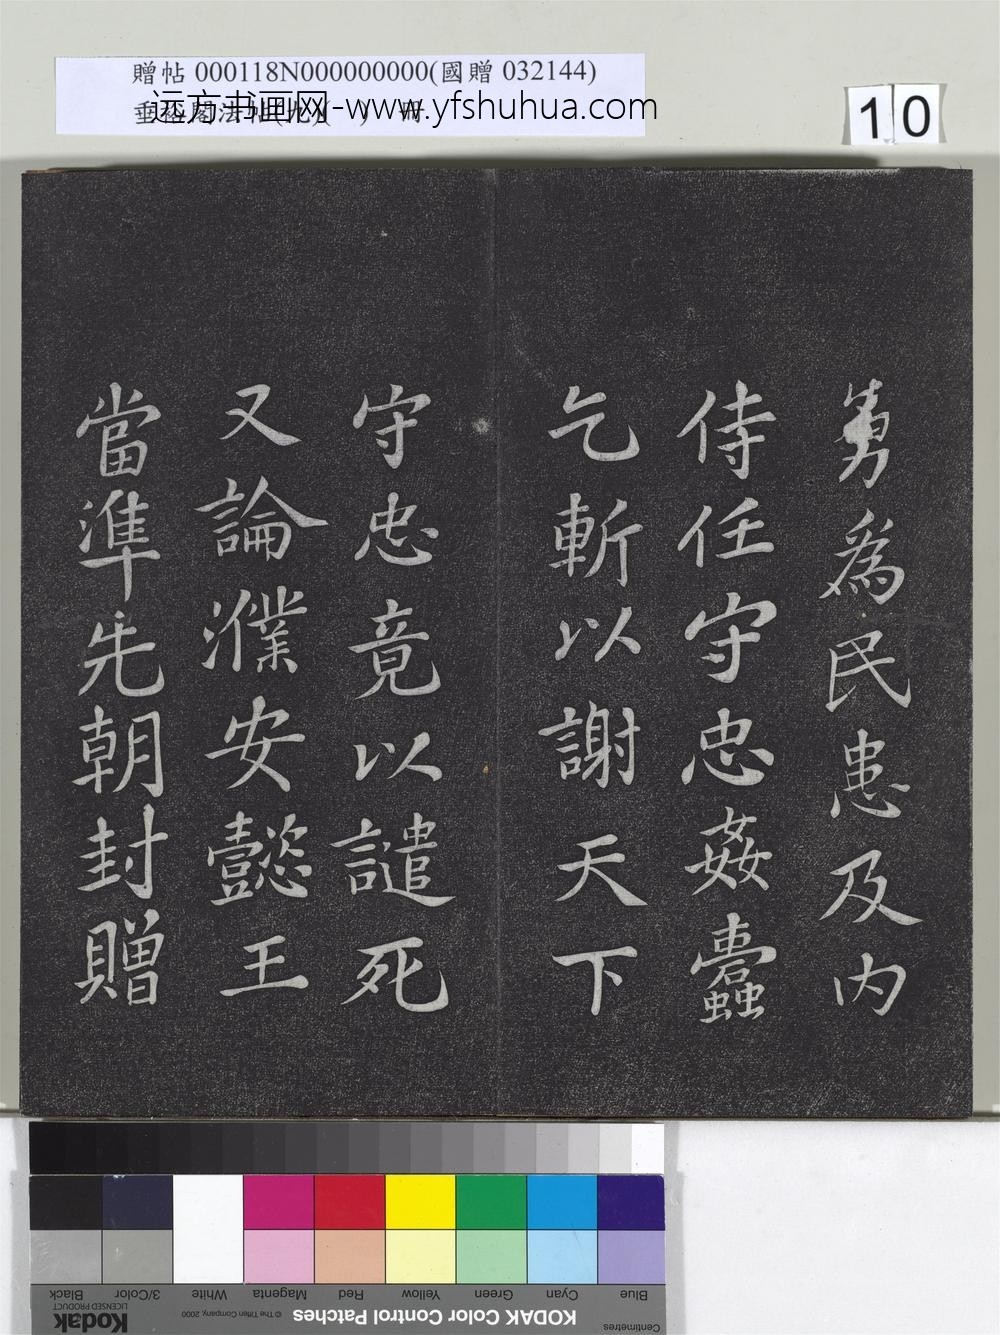 贈帖 000118N000000000(國贈 032144)
远方书画网-www.yfshuhua.com
10
勇為民患及内
侍任守忠姦蠹
乞斬以謝天下
守忠竟以譴死
又論濮安懿王
當準先朝封贈
Black
3/Color
White
Magenta
Red
Yellow
Green
Cyan
Blue
Kodak
LICENSED PRODUCT
© The Tiffen Company, 2000
KODAK Color Control Patches
Centimetres